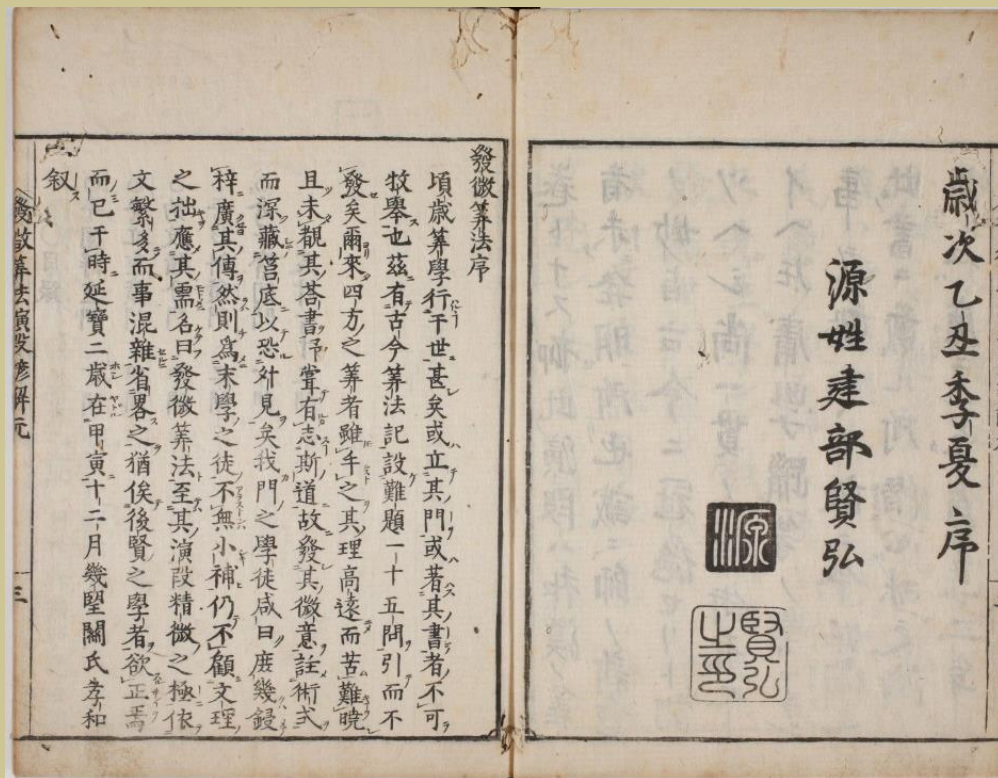 歳次乙丑季夏序
源姓建部賢弘
源
賢弘之印
發微筭法序
頃歳筭學行于世甚矣或立其門或著其書者不可
枚舉也茲有古今筭法記設難題一十五問引而不
發矣爾來四方之筭者雖手之其理高遠而苦難曉
且未覩其荅書予甞有志斯道故發其微意註術式
而深藏筥底以恐外見矣我門之學徒咸曰庶幾鋟
梓廣其傳然則爲末學之徒不無小補仍不顧文理
之拙應其需名曰發微筭法至其演段精微之極依
文繁多而事混雜省畧之猶俟後賢之學者欲正焉
而已于時延寳二歳在甲寅十二月幾望關氏孝和
叙
發微筭法演段諺解元 三